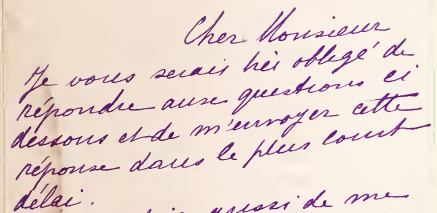 Cher Monsieur
Je vous serais très obligé de
répondre aux questions ci
dessous et de m'envoyer cette
réponse dans le plus court
délai.
aussi de me